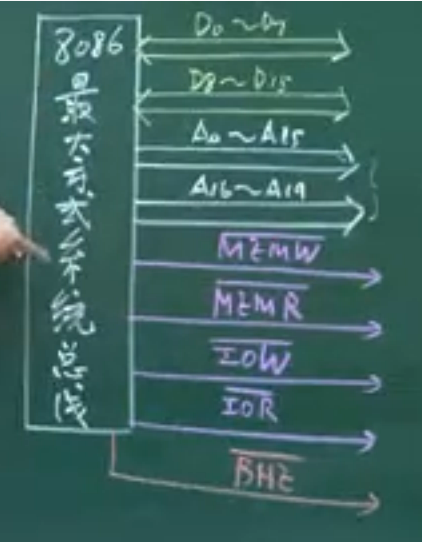 8086
最大方式系统总线
D0~D7
D8~D15
A0~A15
A16~A19
M̅E̅M̅W̅
M̅E̅M̅R̅
I̅O̅W̅
I̅O̅R̅
B̅H̅E̅